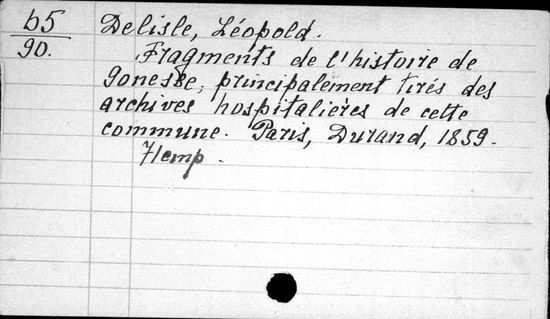 b5
90.
Delisle, Léopold.
Fragments de l'histoire de
gonesse, principalement tirés des
archives hospitalières de cette
commune. Paris, Durand, 1859.